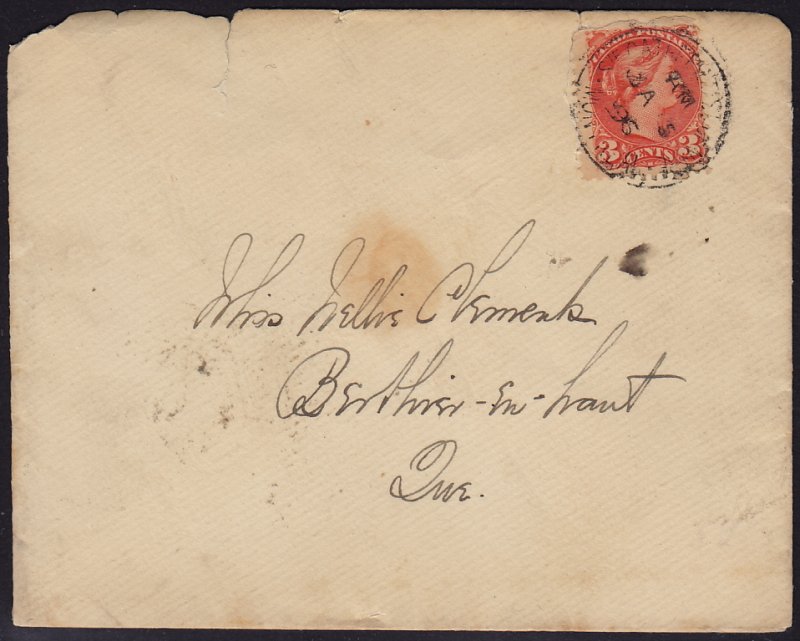 CANADA POSTAGE
3 CENTS 3
AM
JA 15
96
Miss Nellie Clements
Berthier-en-haut
Que.